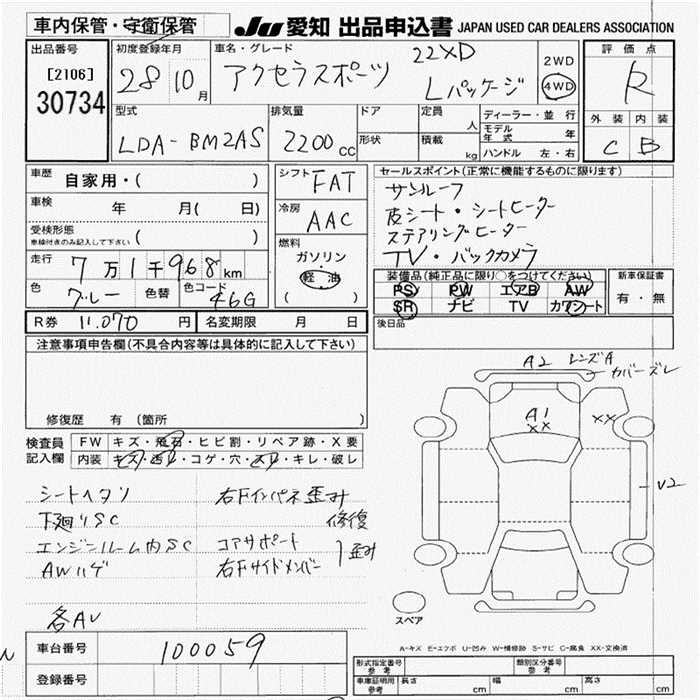 車内保管・守衛保管
JU 愛知 出品申込書 JAPAN USED CAR DEALERS ASSOCIATION
出品番号
[2106]
30734
初度登録年月
28 10月
車名・グレード
アクセラスポーツ
22XD
Lパッケージ
2WD
4WD
評価点
R
外装 内装
C B
型式
LDA-BM2AS
排気量
2200cc
ドア
形状
定員 人
積載 kg
ディーラー・並行
モデル年式 年
ハンドル 左・右
車歴 自家用・( )
車検 年 月( 日)
受検形態
車検付きのみ記入して下さい ( )
走行 7万1千968km
色 グレー 色替 色コード 46G
シフト FAT
冷房 AAC
燃料
ガソリン
軽・油
( )
R券 11,070円 名変期限 月 日
セールスポイント(正常に機能するものに限ります)
サンルーフ
皮シート・シートヒーター
ステアリングヒーター
TV・バックカメラ
装備品(純正品に限り○をつけてください)
PS PW エアB AW
SR ナビ TV カワシート
新車保証書
有・無
後日品
注意事項申告欄(不具合内容等は具体的に記入して下さい)
修復歴 有 (箇所 )
検査員記入欄
FW キズ・飛石・ヒビ割・リペア跡・X要
内装 キズ・汚れ・コゲ・穴・スレ・キレ・破レ
シートヘタリ
下廻りSC
エンジンルーム内SC
AWハゲ
各AU
右Fインパネ歪み
修復
コアサポート
右Fサイドメンバー
歪み
A2 レンズA
カバーズレ
A1
XX
XX
U2
スペア
A-キズ E-エクボ U-凹み W-補修跡 S-サビ C-腐食 XX-交換済
車台番号 100059
登録番号
形式指定番号 参考
類別区分番号 参考
車庫証明用 参考
長さ cm 幅 cm 高さ cm